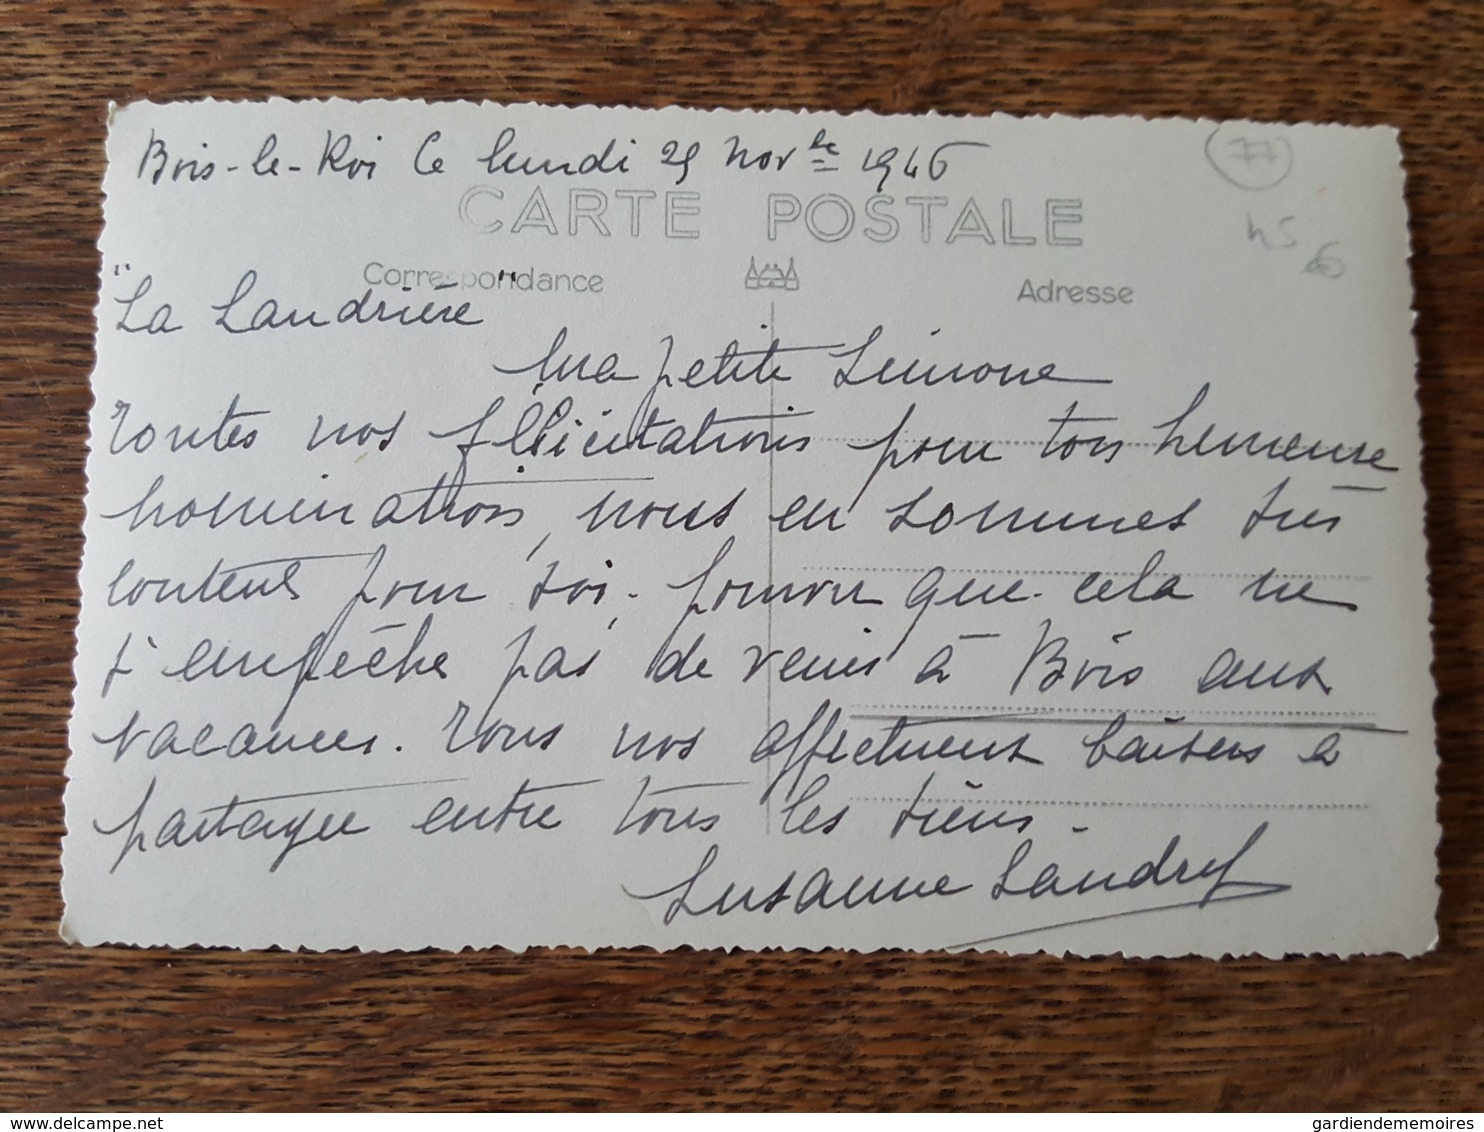 Bois-le-Roi Ce lundi 25 Novbre 1946
77
CARTE POSTALE
45
6
Correspondance
Adresse
"La Landrière"
Ma petite Simone
Toutes nos félicitations pour ton heureuse
nomination, nous en sommes très
contents pour toi, pourvu que cela ne
t'empêche pas de venir à Bois aux
vacances. Tous nos affectueux baisers à
partager entre tous les tiens.
Suzanne Landry
delcampe.net
gardiendememoires